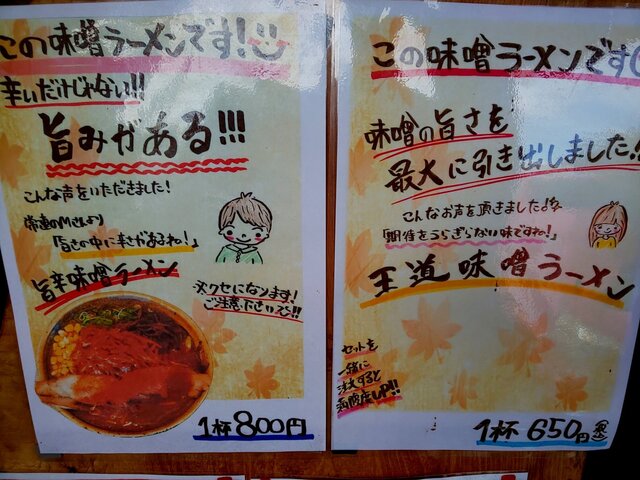 この味噌ラーメンです!
辛いだけじゃない!!
旨みがある!!!
こんな声をいただきました!
常連のMさんより
「旨さの中に辛さがあるね!」
旨辛味噌ラーメン
※クセになります!
ご注意ください!!
1杯 800円
この味噌ラーメンです
味噌の旨さを
最大に引き出しました!
こんなお声を頂きました
「期待をうらぎらない味ですね!」
王道味噌ラーメン
セットを
一緒に
注文すると
満腹度UP!!
1杯 650円